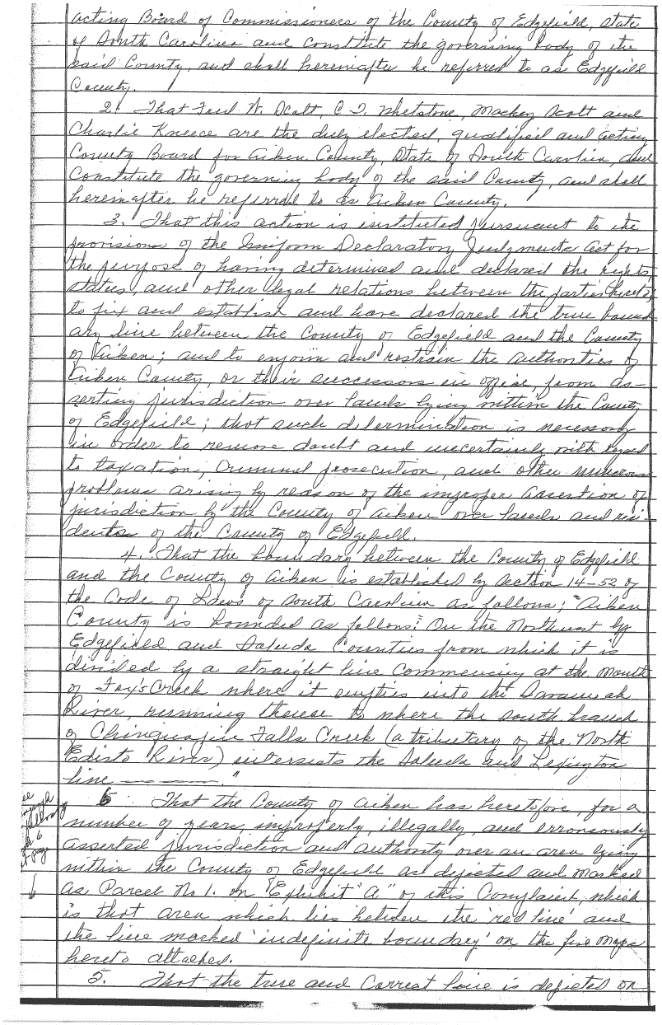 acting Board of Commissioners of the County of Edgefield, State
of South Carolina and constitute the governing body of the
said County, and shall hereinafter be referred to as Edgefield
County.
2. That Ford A. Scott, C. T. Whetstone, Mackey Scott and
Charlie Kneece are the duly elected, qualified and acting
County Board for Aiken County, State of South Carolina, and
constitute the governing body of the said County, and shall
hereinafter be referred to as Aiken County.
3. That this action is instituted pursuant to the
provisions of the Uniform Declaratory Judgments Act for
the purpose of having determined and declared the rights,
status, and other legal relations between the parties hereto;
to fix and establish and have declared the true bound
ary line between the County of Edgefield and the County
of Aiken; and to enjoin and restrain the authorities of
Aiken County, or their successors in office, from as-
serting jurisdiction over lands lying within the County
of Edgefield; that such determination is necessary
in order to remove doubt and uncertainty with regard
to taxation, criminal prosecution, and other numerous
problems arising by reason of the improper assertion of
jurisdiction by the County of Aiken over lands and resi
dents of the County of Edgefield.
4. That the boundary between the County of Edgefield
and the County of Aiken is established by section 14-52 of
the Code of Laws of South Carolina as follows; "Aiken
County is bounded as follows: On the Northwest by
Edgefield and Saluda Counties from which it is
divided by a straight line commencing at the mouth
of Fox's Creek where it empties into the Savannah
River running thence to where the south branch
of Chinquapin Falls Creek (a tributary of the North
Edisto River) intersects the Saluda and Lexington
line — — — "
5 That the County of Aiken has heretofore, for a
number of years, improperly, illegally, and erroneously
asserted jurisdiction and authority over an area lying
within the County of Edgefield as depicted and marked
as Parcel No 1. on "Exhibit "A" of this Complaint, which
is that area which lies between the 'red line' and
the line marked 'indefinite boundary' on the five maps
hereto attached.
5. That the true and correct line is depicted on